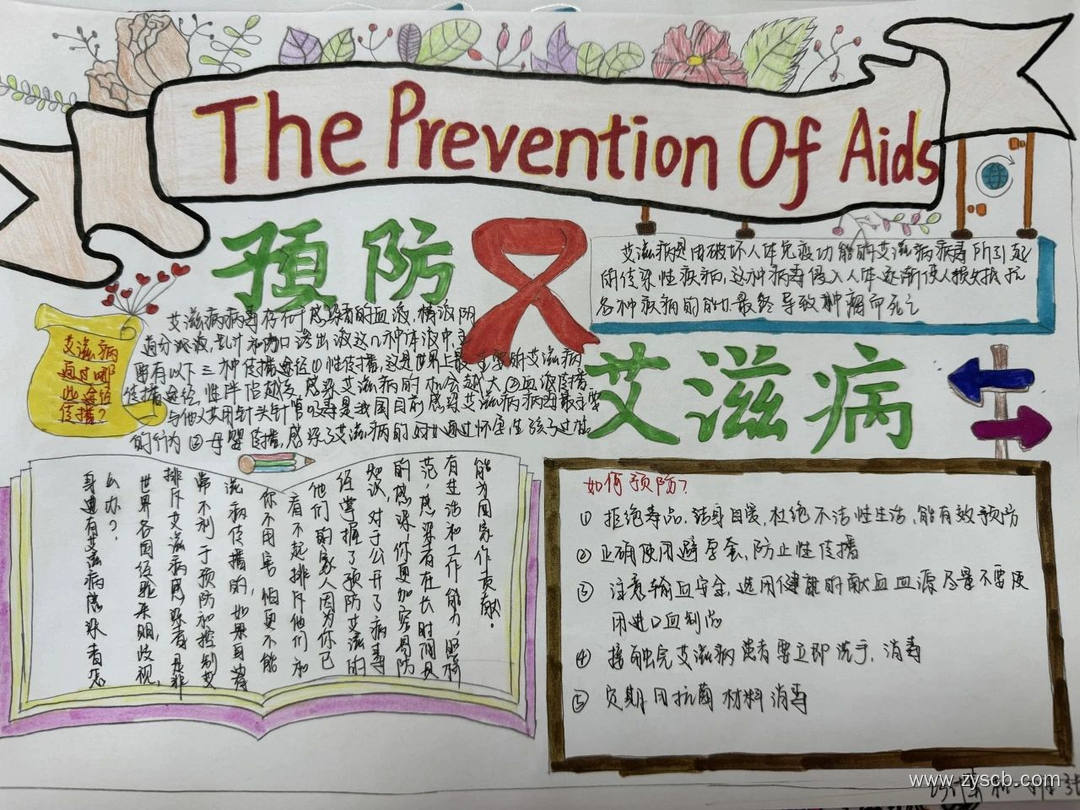 The Prevention Of Aids
預防
艾滋病
艾滋病是由破坏人体免疫功能的艾滋病病毒所引起
的传染性疾病,这种病毒侵入人体逐渐使人损失抵抗
各种疾病的能力最终导致肿瘤而死亡
艾滋病
通过哪
些途径
传播?
艾滋病病毒存于感染者的血液,精液阴
道分泌液,乳汁和伤口渗出液这几种体液中主
要有以下三种传播途径①性传播,这是世界上最主要的艾滋病
传播途径,性伴侣越多,感染艾滋病的机会越大②血液传播
与他人共用针头针管吸毒是我国目前感染艾滋病病毒最主要
的行为③母婴传播,感染了艾滋病的妇女通过怀孕生孩子
身边有艾滋病感染者怎
么办?
世界各国经验表明,歧视,
排斥艾滋病感染者是非
常不利于预防和控制艾
滋病传播的,如果身边
你不用害怕更不能
看不起排斥他们和
他们的家人因为你已
经掌握了预防艾滋的
知识,对于公开了病毒
的感染,你更加容易防
范,感染者在长时间具
有生活和工作能力,照样
能为国家作贡献.
如何预防?
① 拒绝毒品,洁身自爱,杜绝不洁性生活,能有效预防
② 正确使用避孕套,防止性传播
③ 注意输血安全,选用健康的献血血源尽量不要使
用进口血制品
④ 接触完艾滋病患者要立即洗手,消毒
⑤ 定期用抗菌材料消毒
www.zyscb.com